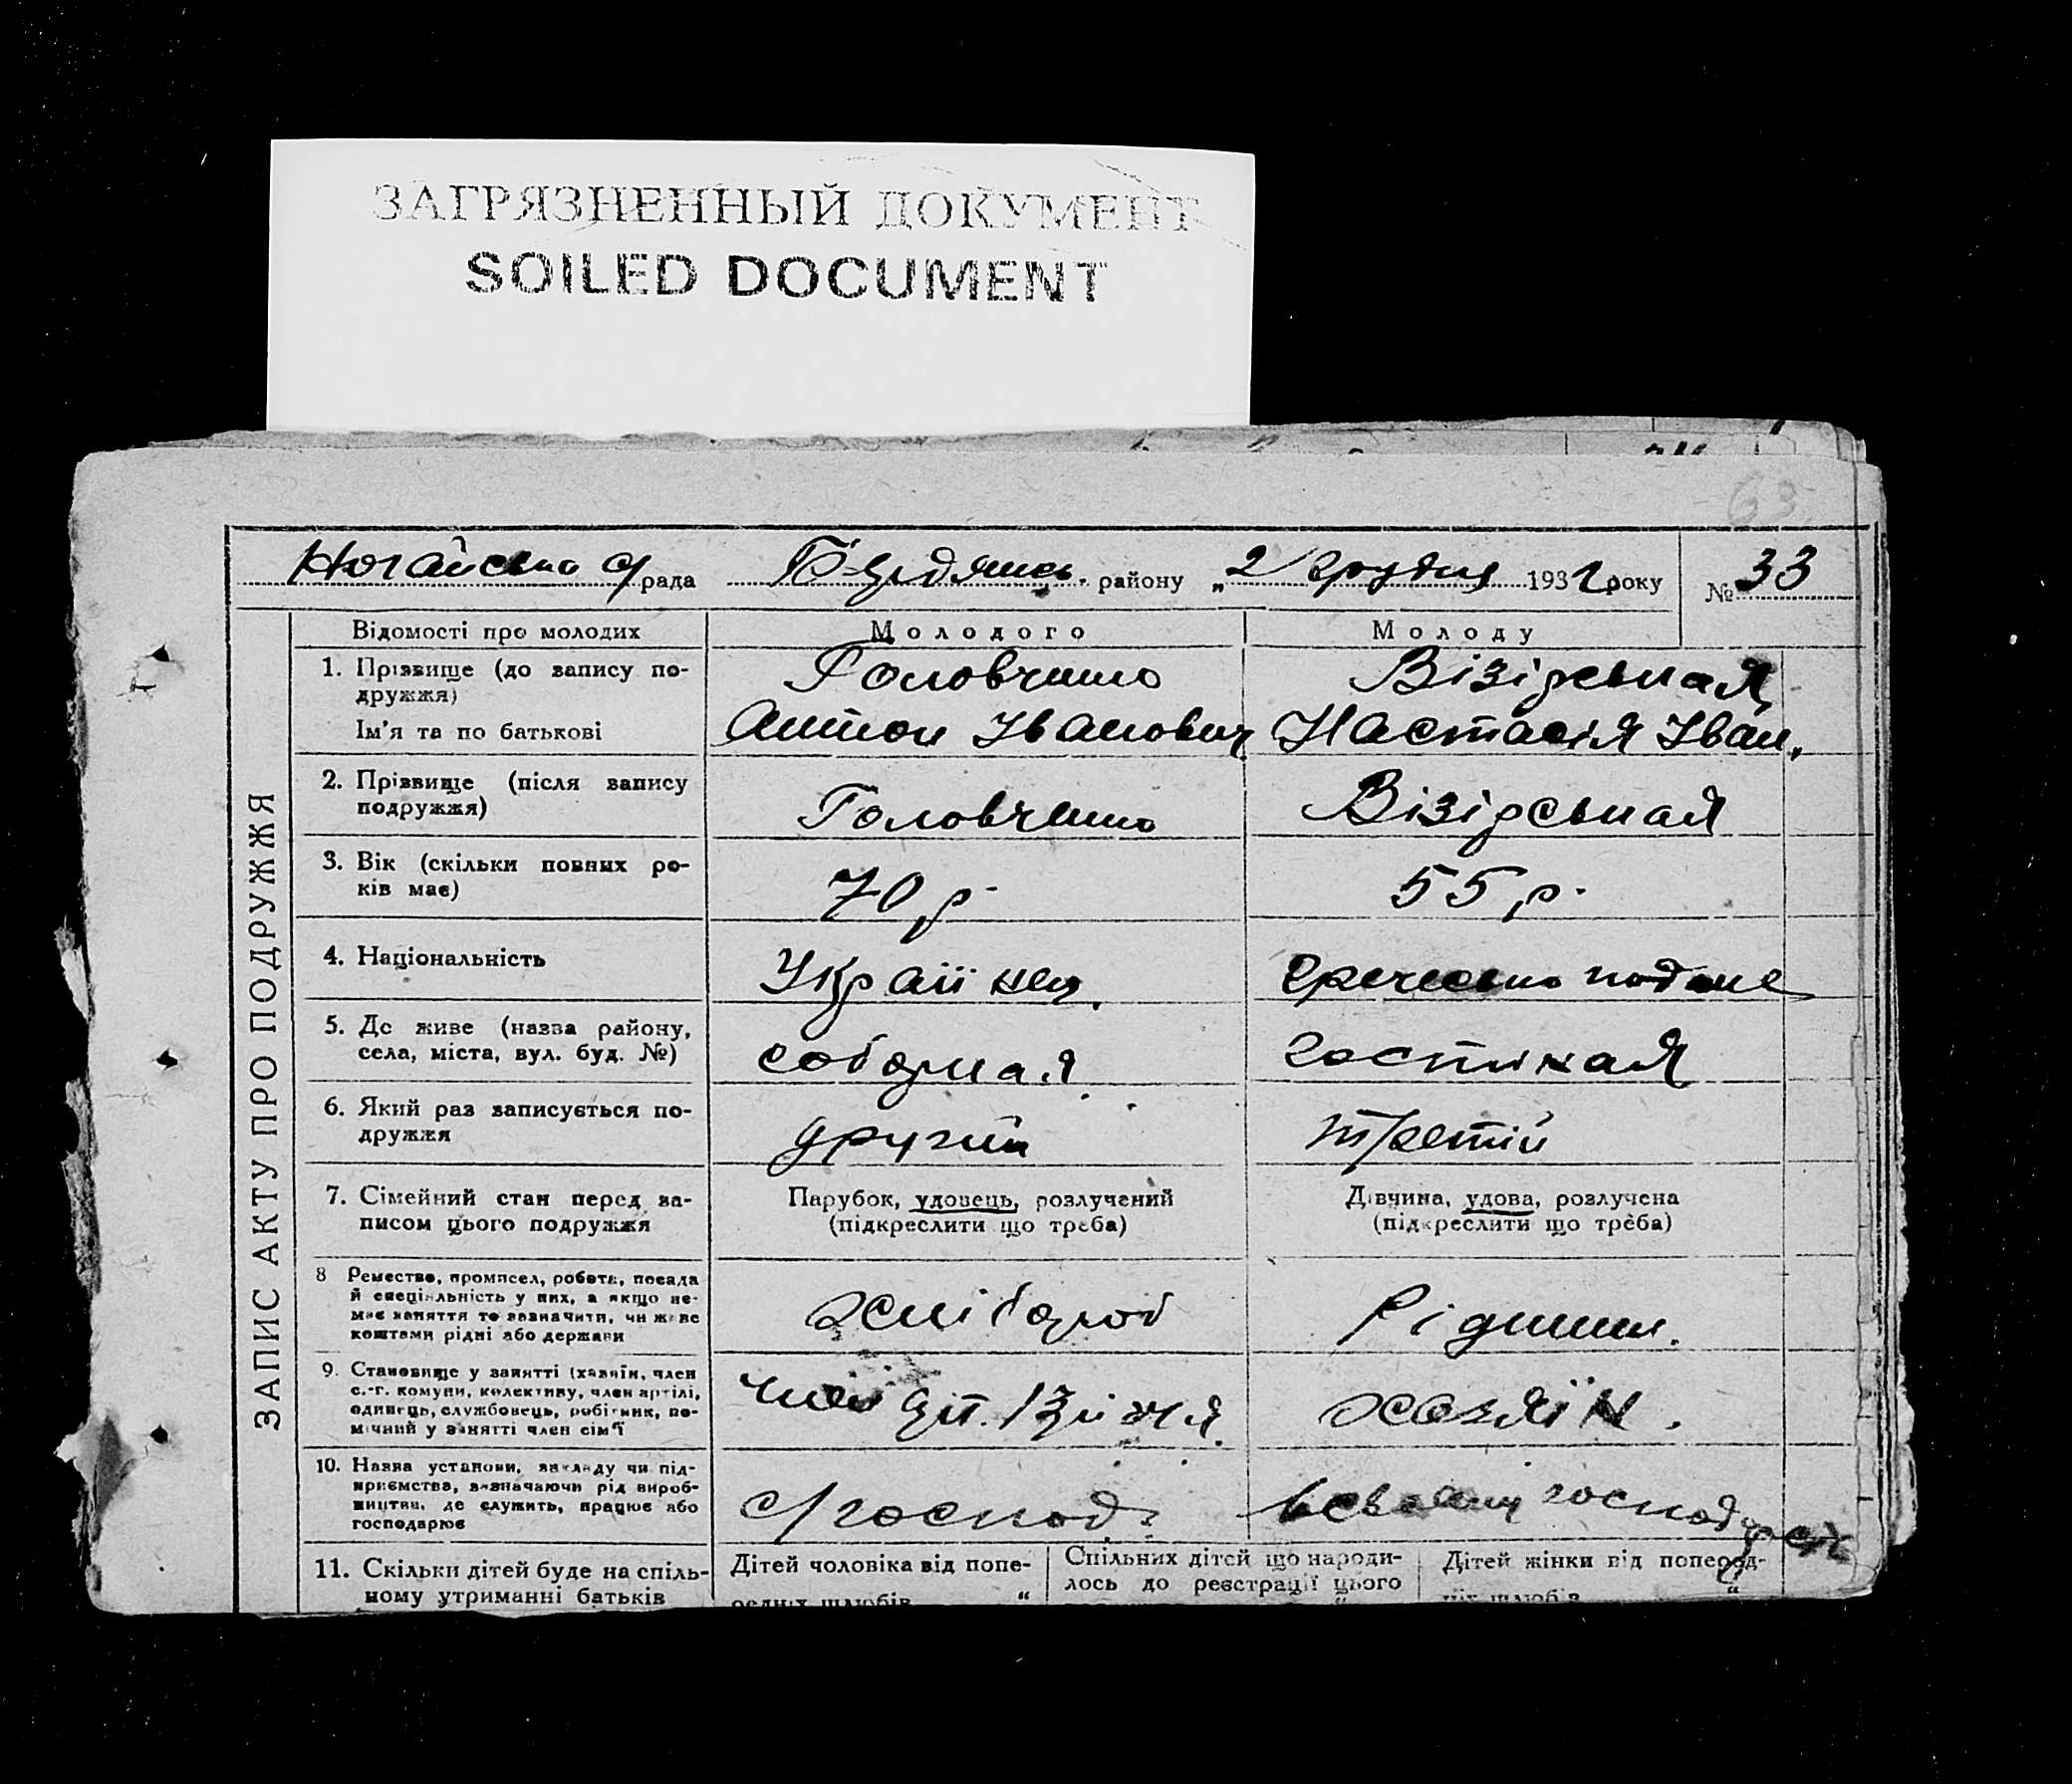 ЗАГРЯЗНЕННЫЙ ДОКУМЕНТ
SOILED DOCUMENT
63
Ногайська с/рада Бердянськ. району „2 грудня 1932 року № 33
ЗАПИС АКТУ ПРО ПОДРУЖЖЯ
Відомості про молодих Молодого Молоду
1. Прізвище (до запису по-
дружжя) Головченко Візірськая
Ім'я та по батькові Антон Іванович Настасія Іван.
2. Прізвище (після запису
подружжя) Головченко Візірськая
3. Вік (скільки повних ро-
ків має) 70 р. 55 р.
4. Національність Українец. греческо подане
5. Де живе (назва району,
села, міста, вул. буд. №) соборная гостиная
6. Який раз записується по-
дружжя другий третій
7. Сімейний стан перед за-
писом цього подружжя
Парубок, удовець, розлучений
(підкреслити що треба)
Дівчина, удова, розлучена
(підкреслити що треба)
8 Ремество, промисел, робота, посада
й спеціальність у них, а якщо не-
має заняття то зазначити, чи живе
коштами рідні або держави хлібороб
9. Становище у занятті (хазяїн, член
с.-г. комуни, колективу, член артілі,
одинець, службовець, робітник, по-
мічний у занятті член сім'ї член хазяїн.
10. Назва установи, закладу чи під-
приємства, зазначаючи рід вироб-
ництва, де служить, працює або
господарює с/господ.
11. Скільки дітей буде на спіль-
ному утриманні батьків
Дітей чоловіка від попе-
редніх шлюбів „
Спільних дітей що народи-
лось до реєстрації цього
Дітей жінки від поперед-
ніх шлюбів „